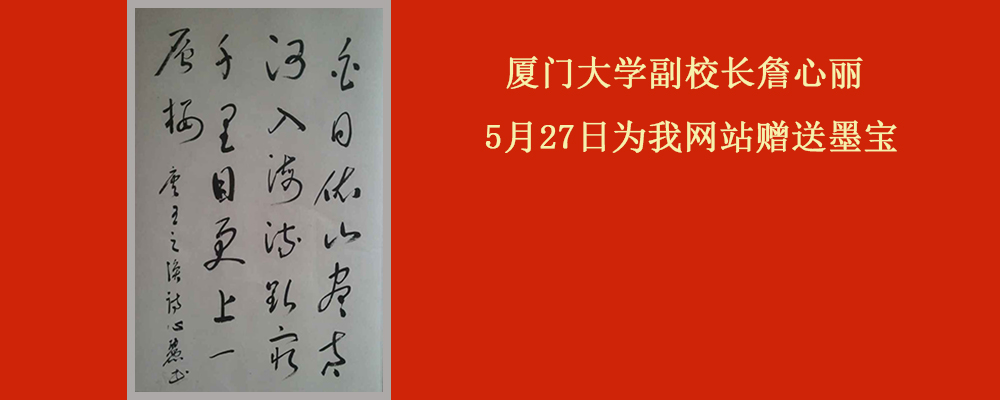 白日依山尽黄
河入海流欲穷
千里目更上一
层楼 唐王之涣诗心丽书
厦门大学副校长詹心丽
5月27日为我网站赠送墨宝